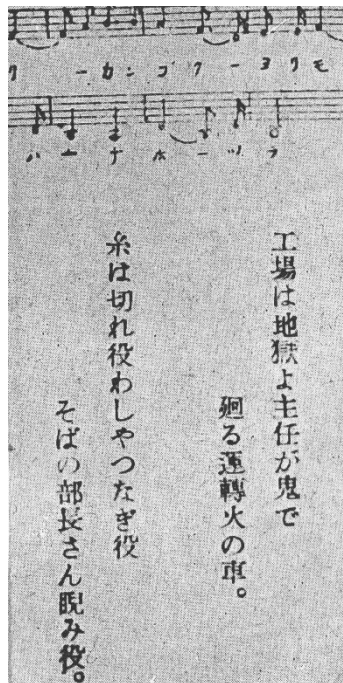 ーカンゴクーヨリモ
ハーナホーツラ
工場は地獄よ主任が鬼で
廻る運轉火の車。
糸は切れ役わしやつなぎ役
そばの部長さん睨み役。